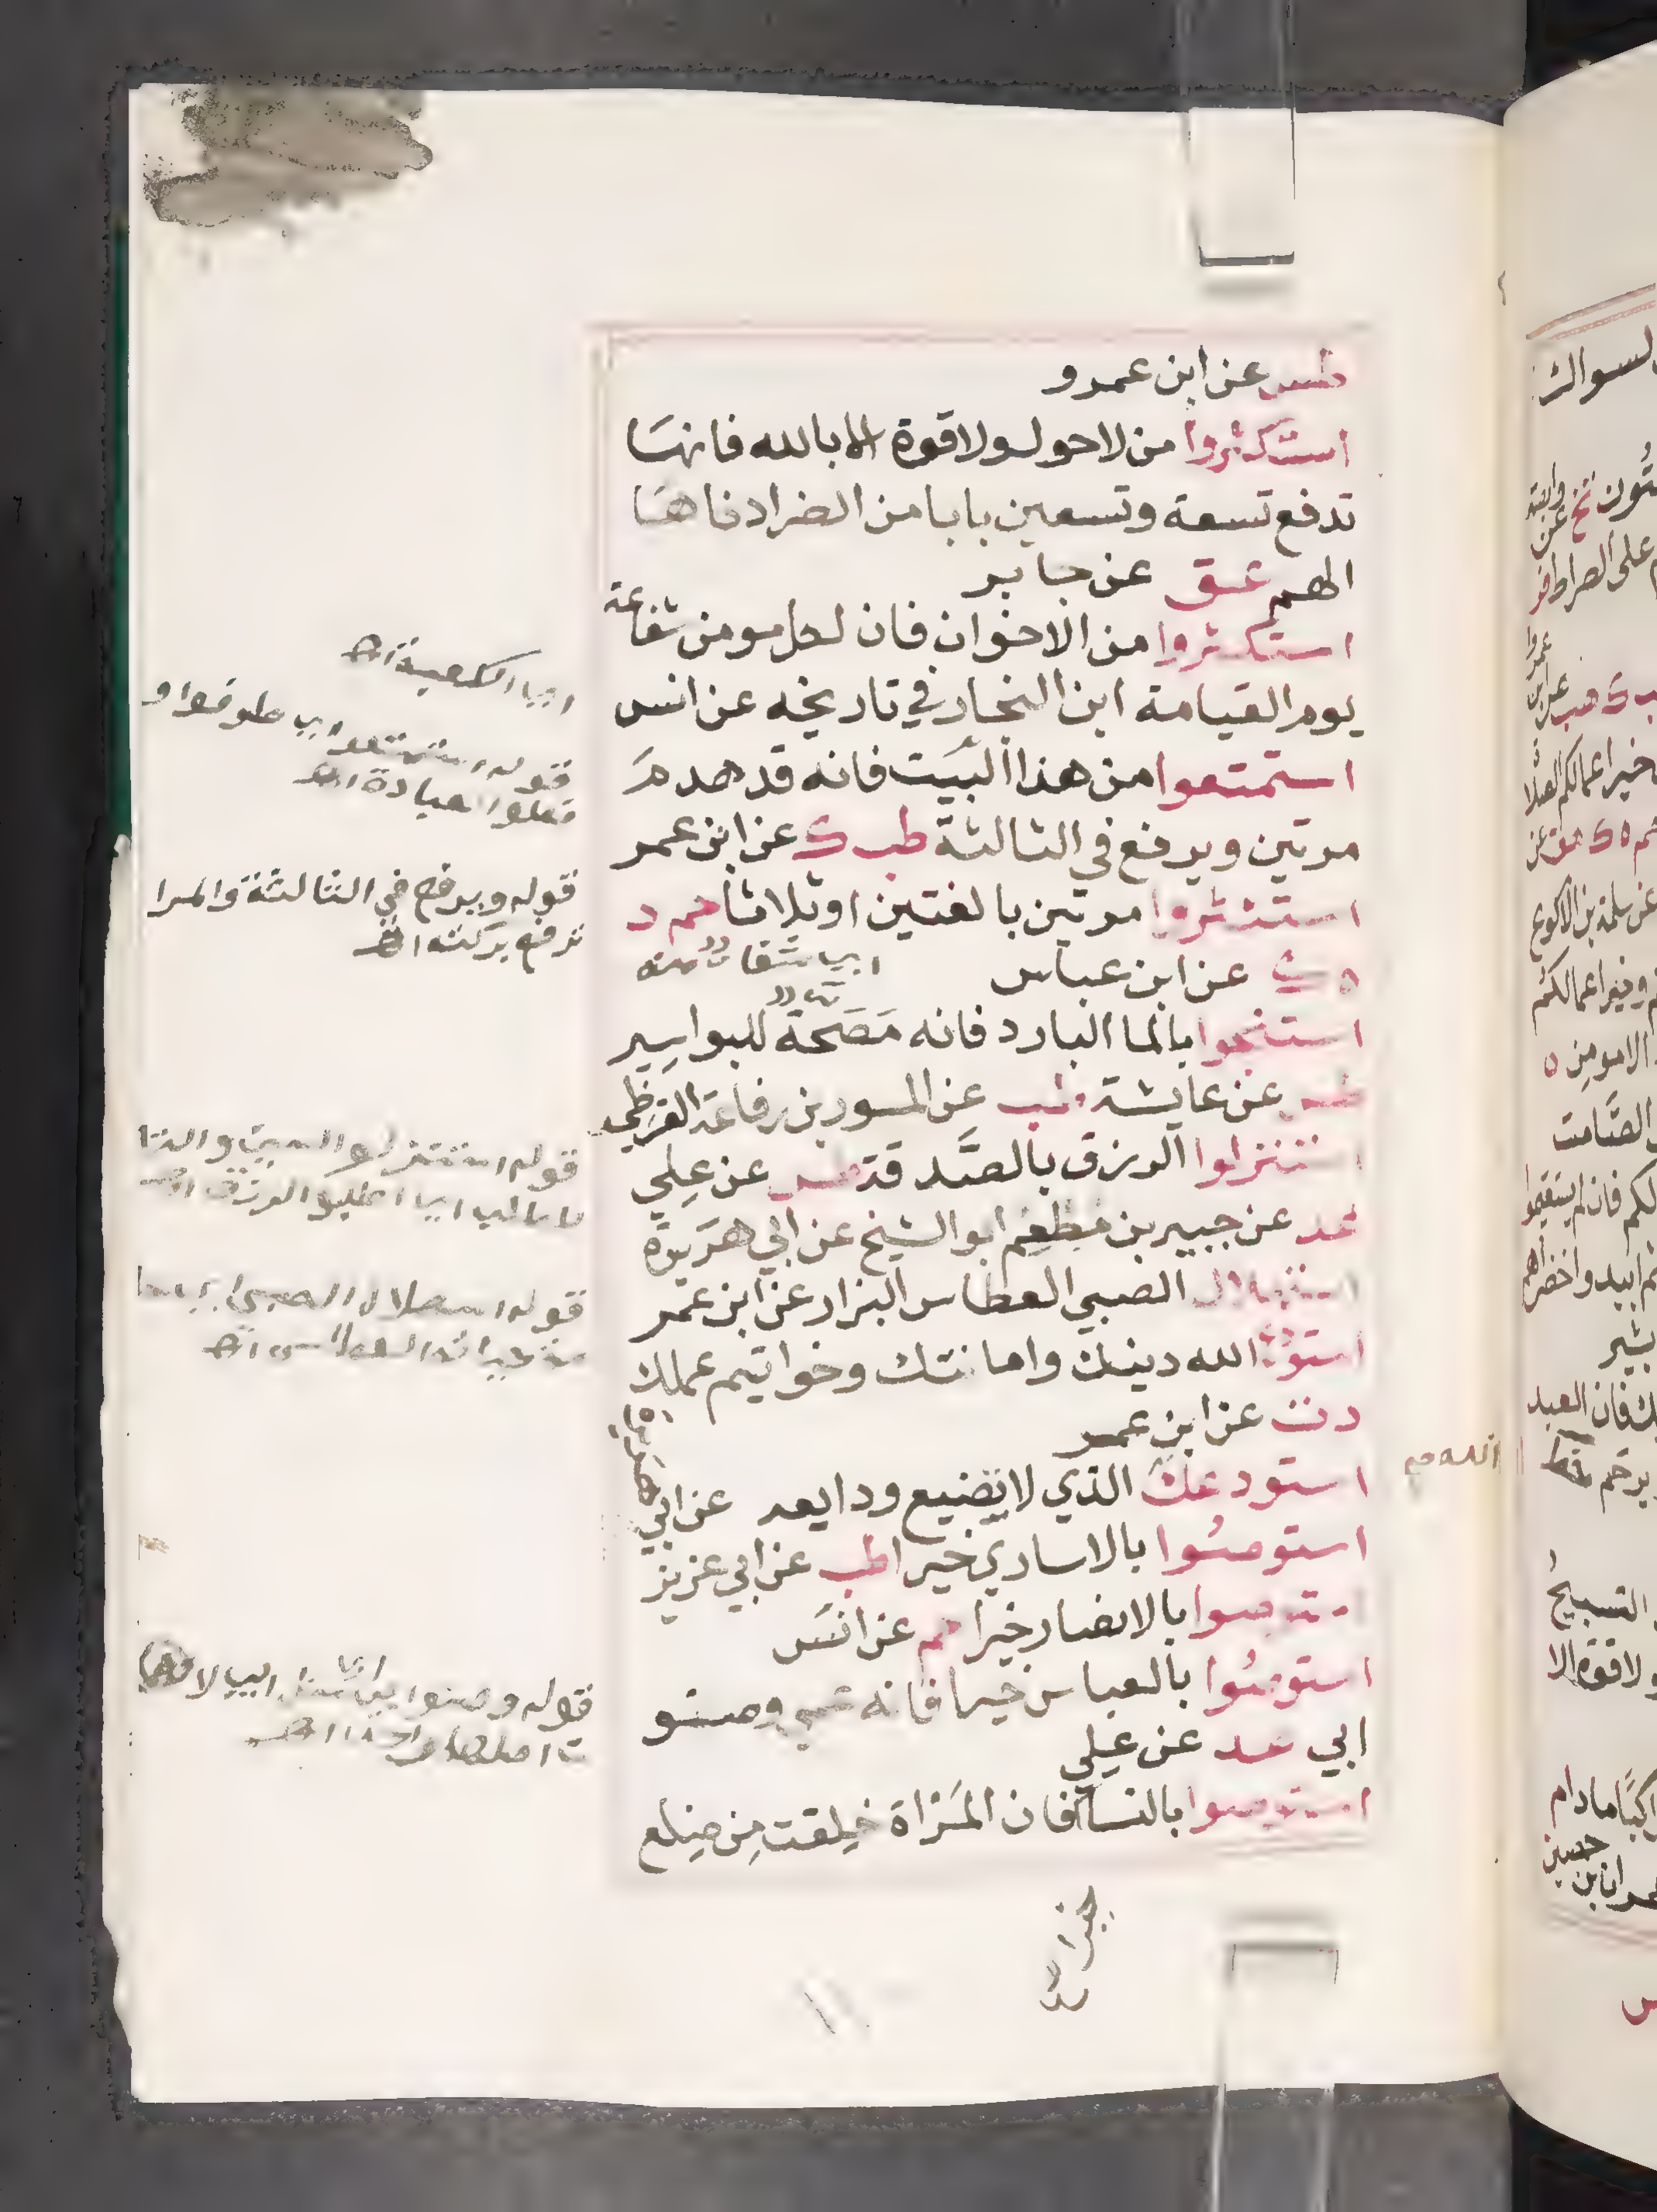 طس عن ابن عمرو
استكثروا من لاحول ولاقوة الا بالله فانها
تدفع تسعة وتسعين بابا من الضر ادناها
الهم عق عن جابر
استكثروا من الاخوان فان لكل مومن شفاعة
يوم القيامة ابن النجار في تاريخه عن انس
استمتعوا من هذا البيت فانه قد هدم
مرتين ويرفع في الثالثة طب ك عن ابن عمر
استنثروا مرتين بالغتين او ثلاثا حم د
ه ك عن ابن عباس
استنجوا بالما البارد فانه مصحة للبواسير
طس عن عايشة طب عن المسور بن رفاعة القرظي
استنزلوا الرزق بالصد قة طس عن علي
عد عن جبير بن مطعم ابو الشيخ عن ابي هريرة
استهلال الصبي العطاس البزار عن ابن عمر
استودع الله دينك وامانتك وخواتيم عملك
دت عن ابن عمر
استودعك الذي لا يضيع ودايعه عن ابي
استوصوا بالاساري خيرا طب عن ابي عزيز
استوصوا بالانصار خيرا حم عن انس
استوصوا بالعباس خيرا فانه عمي وصنو
ابي عد عن علي
استوصوا بالنسا فان المراة خلقت من ضلع
اي الكعبة اھ
قوله استمتعوا اي طوفوا و
قوله ويرفع في الثالثة والمرا
ترفع بركته اھ
اي شفا منه
قوله استنزلوا
اي اطلبو الرزق اھ
قوله استهلال الصبي
قوله وصنوا
الله
١١